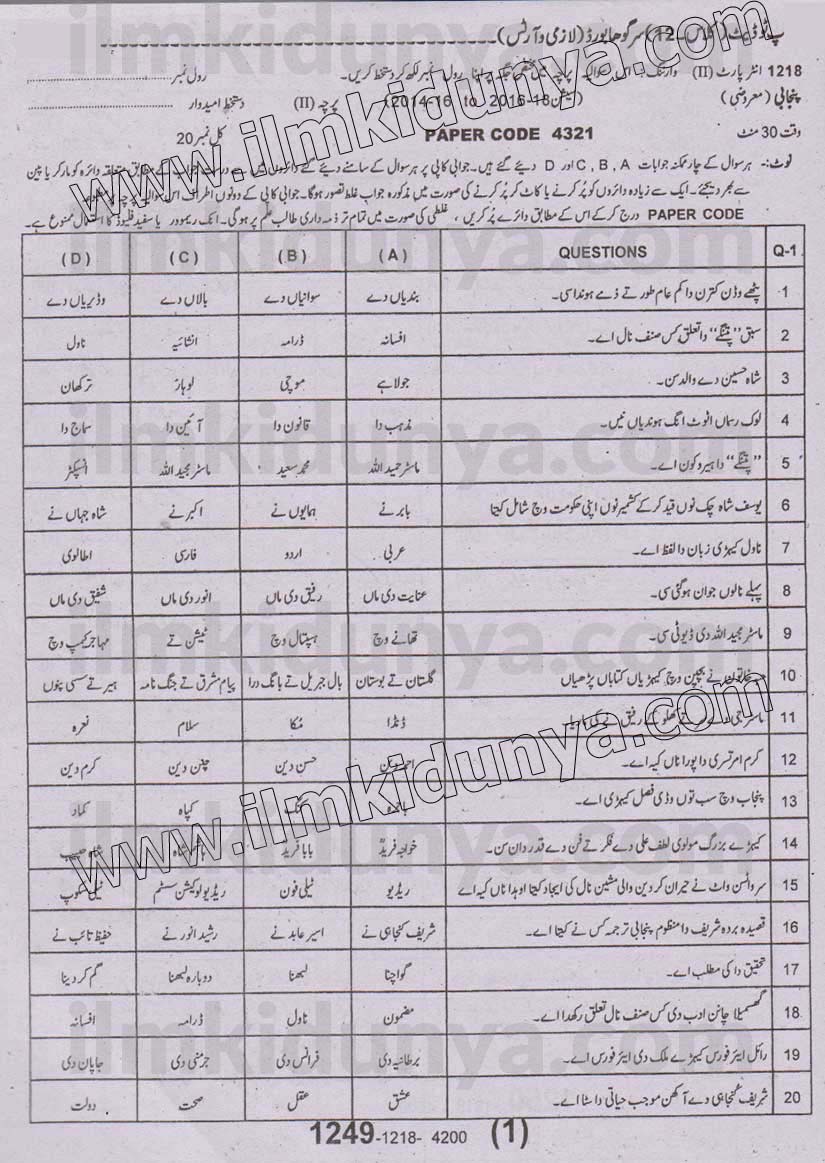 سرگودھا بورڈ (لازمی و آرٹس)
1218 انٹر پارٹ (II) رول نمبر
پنجابی (معروضی) (سیشن 2016-18 to 2014-16) پرچہ (II) دستخط امیدوار
وقت 30 منٹ PAPER CODE 4321 کل نمبر 20
نوٹ:- ہر سوال کے چار ممکنہ جوابات C, B, A اور D دیئے گئے ہیں۔ جوابی کاپی پر ہر سوال کے سامنے دیئے گئے دائروں میں سے درست جواب کے مطابق متعلقہ دائرہ کو مارکر یا پین
سے بھر دیجئے۔ ایک سے زیادہ دائروں کو پُر کرنے یا کاٹ کر پُر کرنے کی صورت میں مذکورہ جواب غلط تصور ہوگا۔ جوابی کاپی کے دونوں اطراف اس سوالیہ پرچہ پر
PAPER CODE درج کرکے اس کے مطابق دائرے پُر کریں، غلطی کی صورت میں تمام تر ذمہ داری طالب علم پر ہوگی۔ انک ریموور یا سفید فلیوڈ کا استعمال ممنوع ہے۔
Q-1 QUESTIONS (A) (B) (C) (D)
1 پٹھے وڈن کترن دا کم عام طور تے ذمے ہوندا سی۔ بندیاں دے سوانیاں دے بالاں دے وڈیریاں دے
2 سبق "پتنگے" دا تعلق کس صنف نال اے۔ افسانہ ڈرامہ انشائیہ ناول
3 شاہ حسین دے والد سن۔ جولاہے موچی لوہار ترکھان
4 لوک رسماں انوٹ انگ ہوندیاں نیں۔ مذہب دا قانون دا آئین دا سماج دا
5 "پتنگے" دا ہیرو کون اے۔ ماسٹر حمید اللہ محمد سعید ماسٹر مجید اللہ انسپکٹر
6 یوسف شاہ چک نوں قید کرکے کشمیر نوں اپنی حکومت وچ شامل کیتا بابر نے ہمایوں نے اکبر نے شاہ جہاں نے
7 ناول کیہڑی زبان دا لفظ اے۔ عربی اردو فارسی اطالوی
8 پہلے نالوں جوان ہوگئی سی۔ عنایت دی ماں رفیق دی ماں انور دی ماں شفیق دی ماں
9 ماسٹر مجید اللہ دی ڈیوٹی سی۔ تھانے وچ ہسپتال وچ ٹیشن تے مہاجر کیمپ وچ
10 نے بچپن وچ کیہڑیاں کتاباں پڑھیاں گلستان تے بوستان بال جبریل تے بانگ درا پیام مشرق تے جنگ نامہ ہیر تے سسی پنوں
11 ماسٹر جی رفیق نے ڈنڈا مُکا سلام نعرہ
12 کرم امرتسری دا پورا ناں کیہ اے۔ حسن دین چنن دین کرم دین
13 پنجاب وچ سب توں وڈی فصل کیہڑی اے۔ کپاہ کماد
14 کیہڑے بزرگ مولوی لطف علی دے فکر تے فن دے قدر دان سن۔ خواجہ فریدؒ بابا فریدؒ
15 سر واٹسن واٹ نے حیران کر دین والی مشین نال کی ایجاد کیتا اوہدا ناں کیہ اے ریڈیو ٹیلی فون ریڈیو لوکیشن سسٹم ٹیلی سکوپ
16 قصیدہ بردہ شریف دا منظوم پنجابی ترجمہ کس نے کیتا اے۔ شریف کنجاہی نے اسیر عابد نے رشید انور نے حفیظ تائب نے
17 تحقیق دا کی مطلب اے۔ گواچنا لبھنا دوبارہ لبھنا گم کر دینا
18 گھسمیلا چانن ادب دی کس صنف نال تعلق رکھدا اے۔ مضمون ناول ڈرامہ افسانہ
19 رائل ایئر فورس کیہڑے ملک دی ایئر فورس اے۔ برطانیہ دی فرانس دی جرمنی دی جاپان دی
20 شریف کنجاہی دے آکھن موجب حیاتی دا سٹا اے۔ عشق عقل صحت دولت
1249-1218-4200 (1)
www.ilmkidunya.com
www.ilmkidunya.com
ilmkidunya.com
ilmkidunya.com
ilmkidunya.com
ilmkidunya.com
ilmkidunya.com